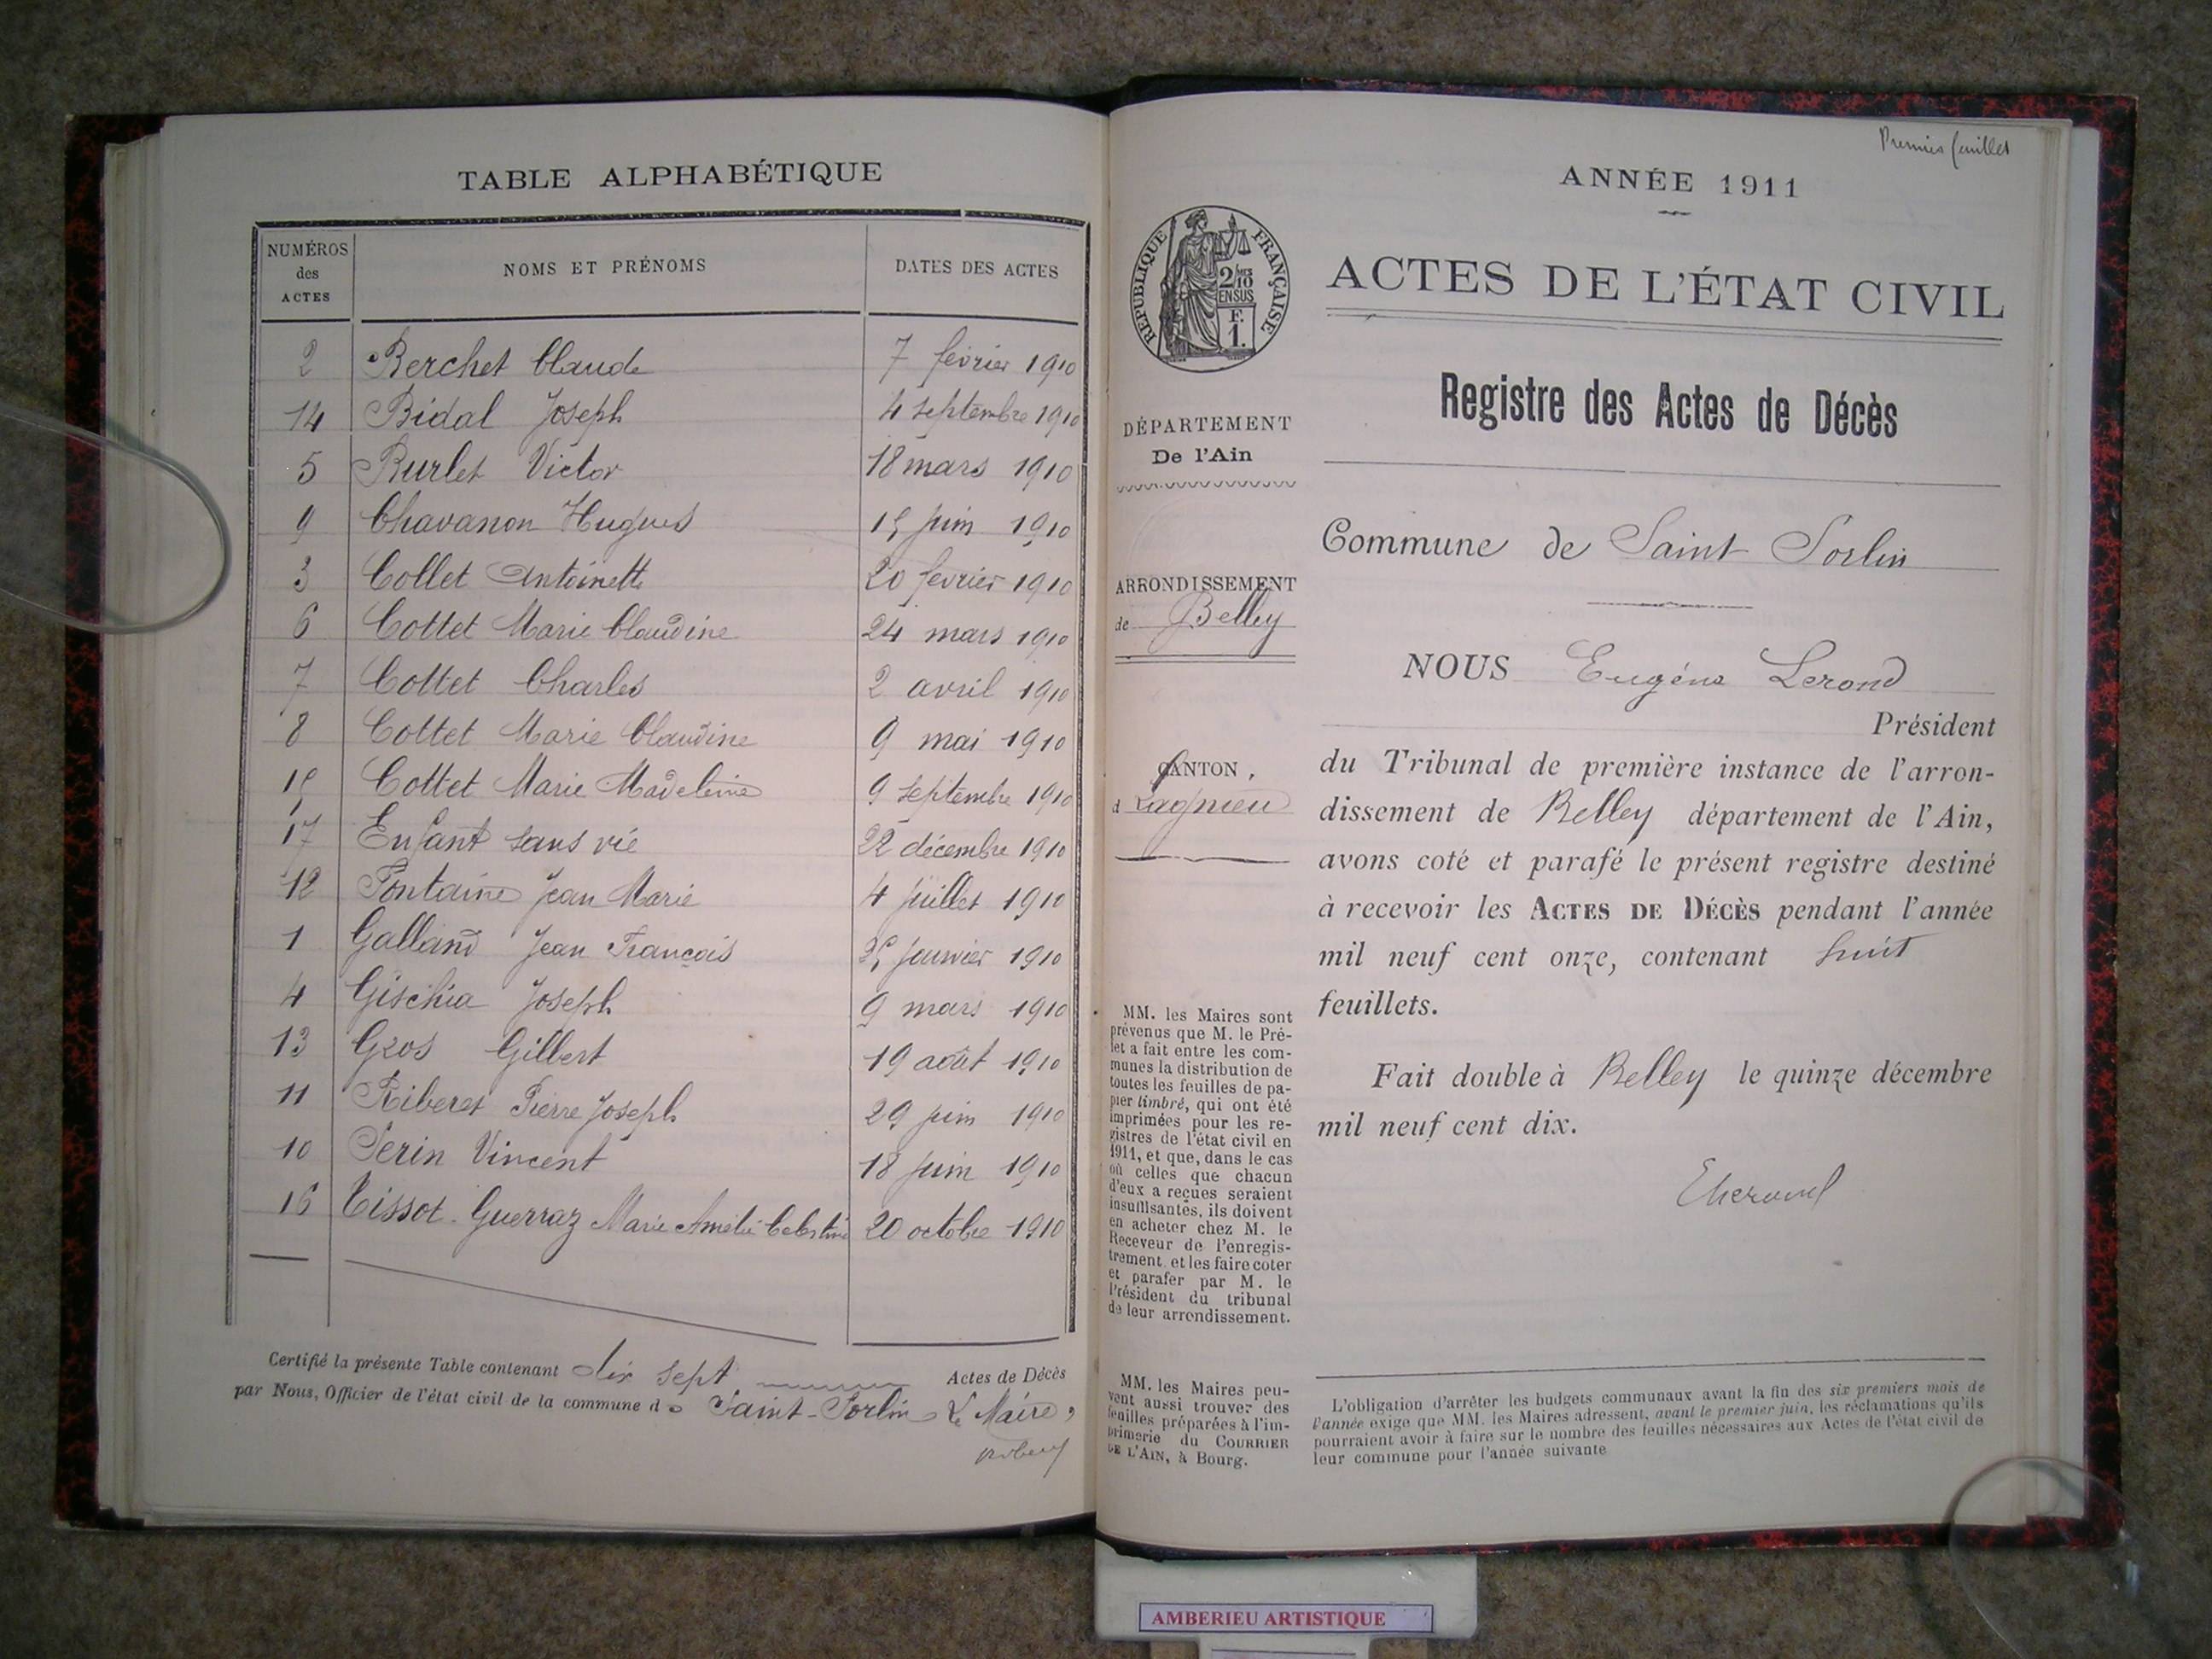 TABLE ALPHABÉTIQUE
NUMÉROS des ACTES NOMS ET PRÉNOMS DATES DES ACTES
2 Berchet Claude 7 février 1910
14 Bidal Joseph 4 septembre 1910
5 Burlet Victor 18 mars 1910
9 Chavanon Hugues 15 juin 1910
3 Collet Antoinette 20 fevrier 1910
6 Cottet Marie Claudine 24 mars 1910
7 Cottet Charles 2 avril 1910
8 Cottet Marie Claudine 9 mai 1910
15 Cottet Marie Madeleine 9 septembre 1910
17 Enfant sans vie 22 décembre 1910
12 Fontaine Jean Marie 4 juillet 1910
1 Galland Jean François 25 janvier 1910
4 Gischia Joseph 9 mars 1910
13 Gros Gilbert 19 août 1910
11 Riberet Pierre Joseph 29 juin 1910
10 Serin Vincent 18 juin 1910
16 Tissot-Guerraz Marie Amélie Celestine 20 octobre 1910
Certifié la présente Table contenant dix sept Actes de Décès
par Nous, Officier de l'état civil de la commune de Saint-Sorlin Le Maire,
Premier feuillet
ANNÉE 1911
RÉPUBLIQUE FRANÇAISE
2/10
EN SUS
F.
1.
ACTES DE L'ÉTAT CIVIL
Registre des Actes de Décès
DÉPARTEMENT
De l'Ain
ARRONDISSEMENT
de Belley
CANTON
d Lagnieu
MM. les Maires sont
prévenus que M. le Pré-
fet a fait entre les com-
munes la distribution de
toutes les feuilles de pa-
pier timbré, qui ont été
imprimées pour les re-
gistres de l'état civil en
1911, et que, dans le cas
où celles que chacun
d'eux a reçues seraient
insuffisantes, ils doivent
en acheter chez M. le
Receveur de l'enregis-
trement et les faire coter
et parafer par M. le
Président du tribunal
de leur arrondissement.
MM. les Maires peu-
vent aussi trouver des
feuilles préparées à l'im-
primerie du COURRIER
DE L'AIN, à Bourg.
Commune de Saint Sorlin
NOUS Eugène Lerond
Président
du Tribunal de première instance de l'arron-
dissement de Belley département de l'Ain,
avons coté et parafé le présent registre destiné
à recevoir les ACTES DE DÉCÈS pendant l'année
mil neuf cent onze, contenant huit
feuillets.
Fait double à Belley le quinze décembre
mil neuf cent dix.
L'obligation d'arrêter les budgets communaux avant la fin des six premiers mois de
l'année exige que MM. les Maires adressent, avant le premier juin, les réclamations qu'ils
pourraient avoir à faire sur le nombre des feuilles nécessaires aux Actes de l'état civil de
leur commune pour l'année suivante
AMBERIEU ARTISTIQUE